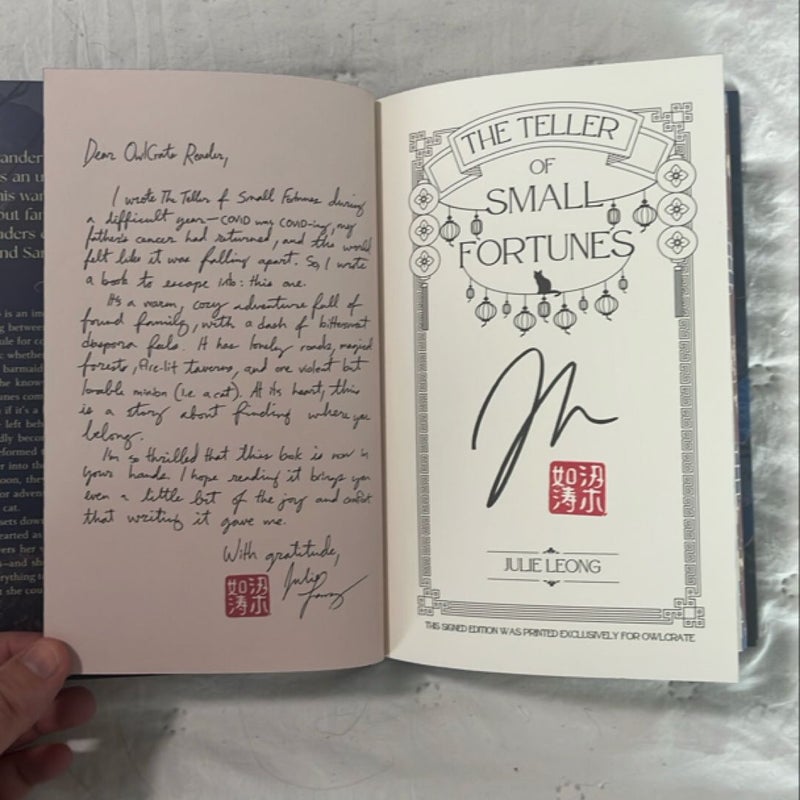 Dear OwlCrate Reader,
I wrote The Teller of Small Fortunes during
a difficult year—COVID was COVID-ing, my
father's cancer had returned, and the world
felt like it was falling apart. So, I wrote
a book to escape into: this one.
It's a warm, cozy adventure full of
found family, with a dash of bittersweet
diaspora feels. It has lonely roads, magical
forests, fire-lit taverns, and one violent but
lovable minion (i.e. a cat). At its heart, this
is a story about finding where you
belong.
I'm so thrilled that this book is now in
your hands. I hope reading it brings you
even a little bit of the joy and comfort
that writing it gave me.
With gratitude,
Julie
Leong
THE TELLER
OF
SMALL
FORTUNES
JULIE LEONG
THIS SIGNED EDITION WAS PRINTED EXCLUSIVELY FOR OWLCRATE